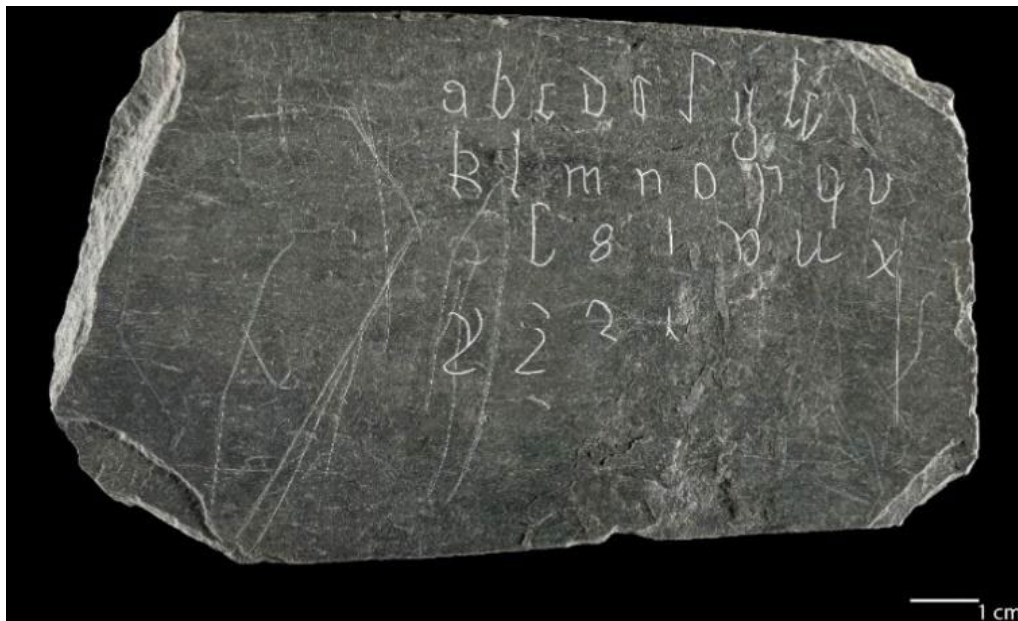 a b c d e f g h i
k l m n o p q r
ſ s t v u x
y z
1 cm